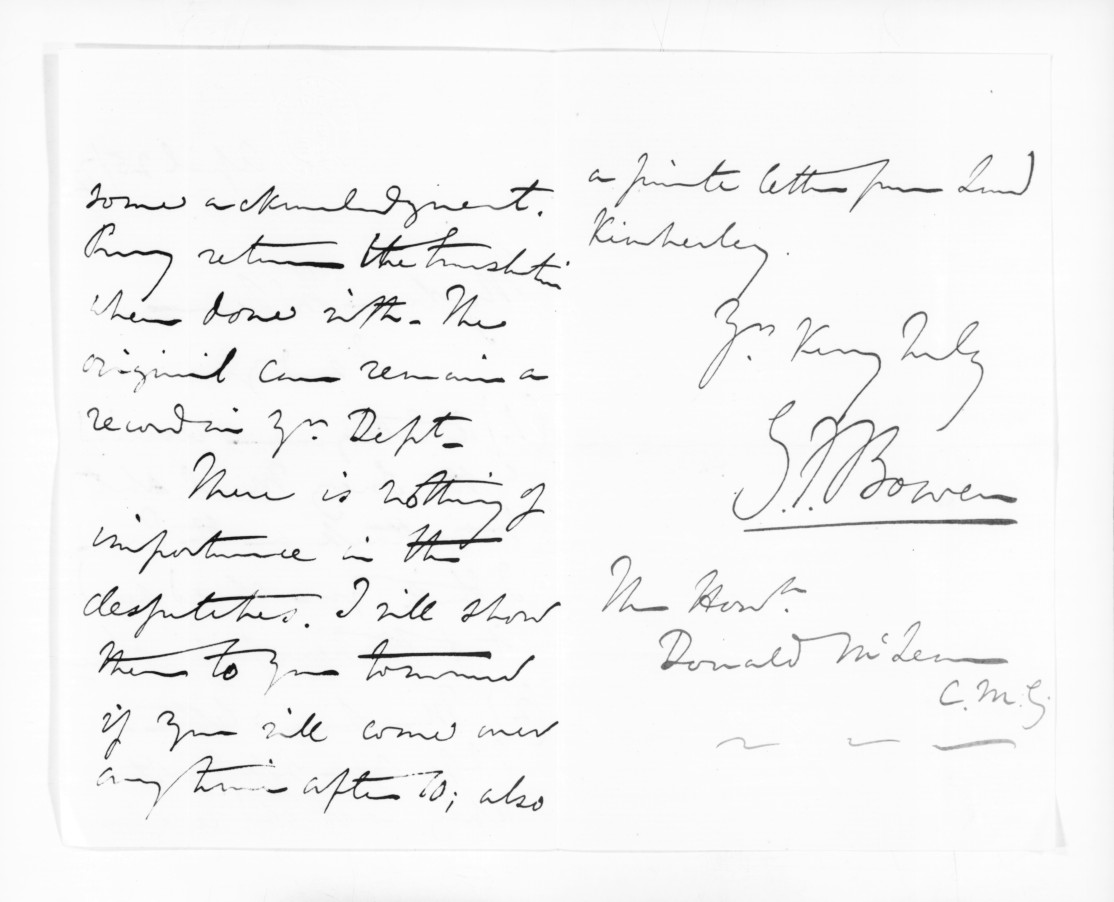 some acknowledgment.
Pray return the translation
when done with. The
original can remain a
record in Yr. Dept.
There is nothing of
importance in the
despatches. I will show
them to you tomorrow
if you will come over
any time after 10; also
a private letter from Lord
Kimberley.
Yrs. very truly
G.F. Bowen
The Honble.
Donald McLean
C.M.G.